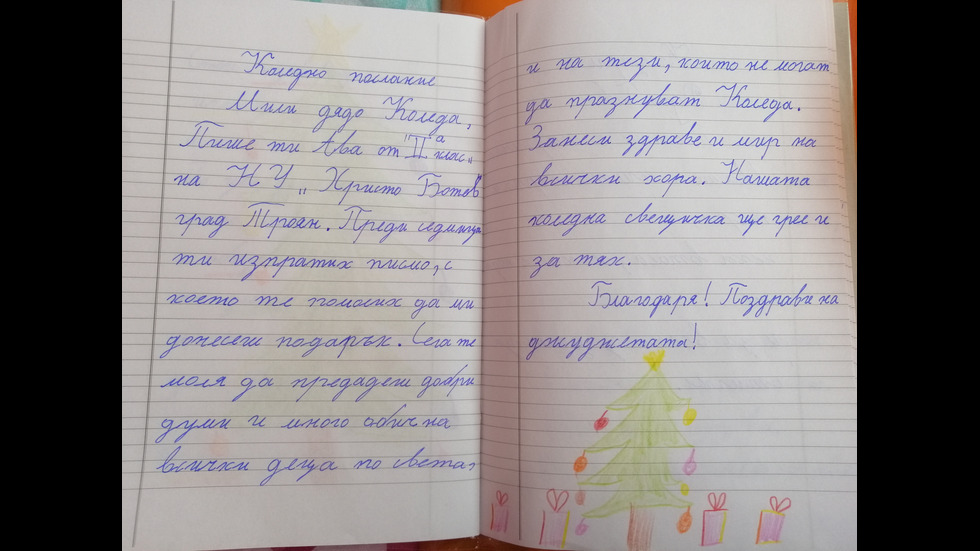 Коледно послание
Мили дядо Коледа,
Пише ти Ава от "IIа клас"
на НУ „Христо Ботев
град Троян. Преди седмица
ти изпратих писмо, с
което те помолих да ми
донесеш подарък. Сега те
моля да предадеш добри
думи и много обич на
всички деца по света,
и на тези, които не могат
да празнуват Коледа.
Занеси здраве и мир на
всички хора. Нашата
коледна свещичка ще грее и
за тях.
Благодаря! Поздрави на
джуджетата!